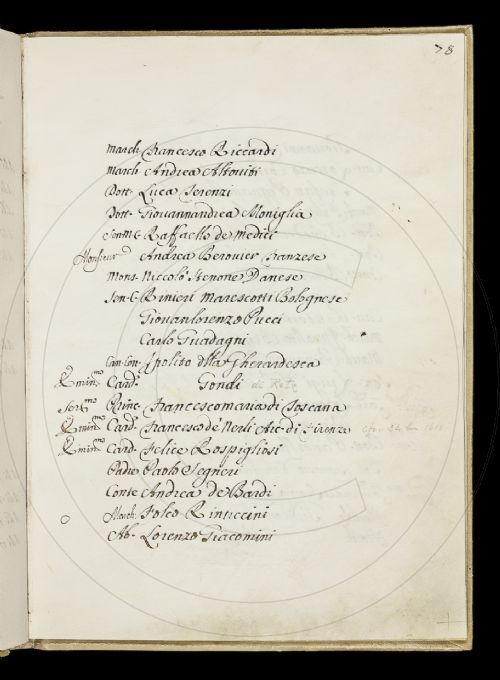 78
March. Francesco Riccardi
March. Andrea Altoviti
Dott. Luca Terenzi
Dott. Giovannandrea Moniglia
Sen. M. C. Raffaello de Medici
Monsieur Andrea Berovier Franzese
Mons. Niccolò Stenone Danese
Sen. C. Rinieri Marescotti Bolognese
Giovanlorenzo Pucci
Carlo Guadagni
Can. Con. Ipolito della Gherardesca
Emin.mo Card. Gondi de Retz
Ser.mo Princ. Francescomaria di Toscana
Emin.mo Card. Francesco de Nerli Arc. di Firenze
Emin.mo Card. Felice Rospigliosi
Padre Paolo Segneri
Conte Andrea de Bardi
March. Folco Rinuccini
Ab. Lorenzo Giacomini